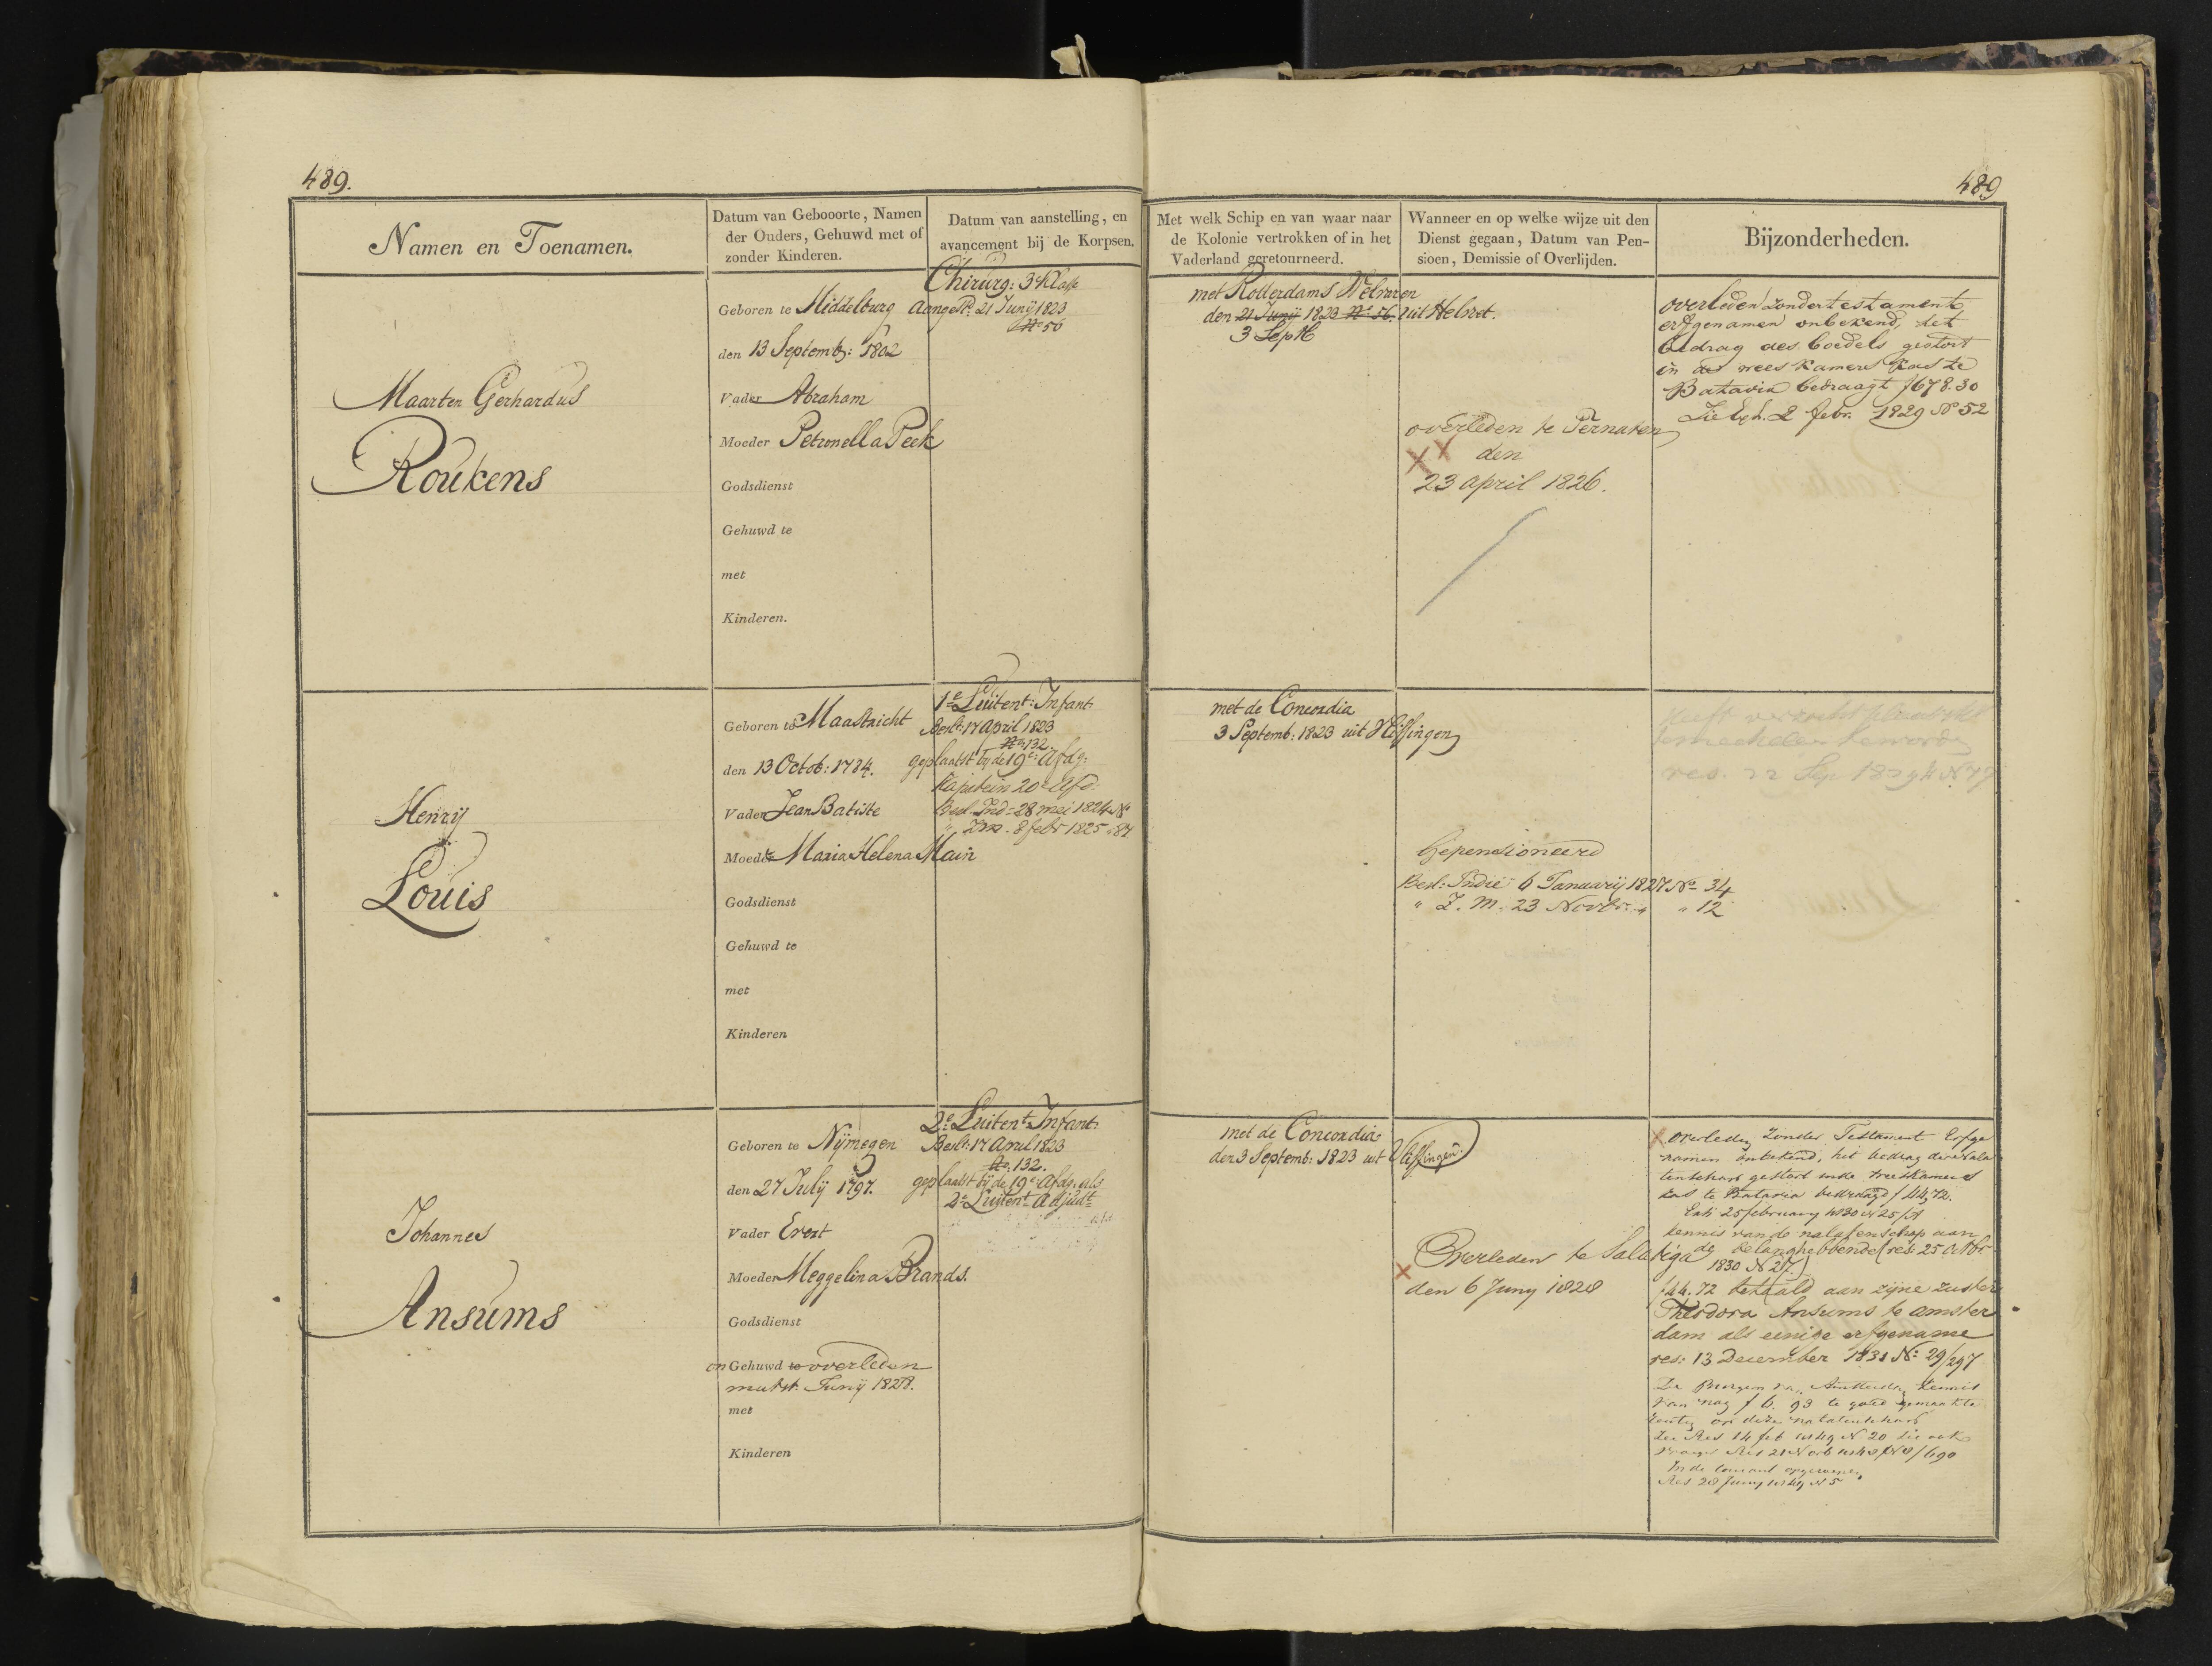 489.
489
Namen en Toenamen.
Datum van Gebooorte, Namen
der Ouders, Gehuwd met of
zonder Kinderen.
Datum van aanstelling, en
avancement bij de Korpsen.
Met welk Schip en van waar naar
de Kolonie vertrokken of in het
Vaderland geretourneerd.
Wanneer en op welke wijze uit den
Dienst gegaan, Datum van Pen-
sioen, Demissie of Overlijden.
Bijzonderheden.
Maarten Gerhardus
Roukens
Geboren te Middelburg
den 13 Septemb: 1802
Vader Abraham
Moeder Petronella Peek
Godsdienst
Gehuwd te
met
Kinderen.
Chirurg: 3e Klasse
21 Junij 1823
No 56
met Rotterdams Welvaren
den 21 Junij 1823 No 56. uit Helvoet.
3 Sept
overleden te Ternaten
den
23 april 1826.
overleden zonder testament
erfgenamen onbekend, het
bedrag des boedels gestort
in de weeskamers kas te
Batavia bedraagt f 678.30
2 febr. 1829 No 52
Henrij
Louis
Geboren te Maastricht
den 13 Octob: 1784.
Vader Jean Batiste
Moeder Maria Helena Main
Godsdienst
Gehuwd te
met
Kinderen
1e Luitent: Infant:
Beslt: 17 April 1823
No 132.
geplaatst bij de 19e Afdg:
Kapitein 20e Afd:
Besl. Ind: 28 mei 1824 No
" Z.M. 8 febr 1825 " 84
met de Concordia
3 Septemb: 1823 uit Vlissingen
Gepensioneerd
Besl: Indië 6 Januarij 1827 No 34
" Z. M. 23 Novbr: " " 12
Johannes
Ansums
Geboren te Nijmegen
den 27 Julij 1797.
Vader Evert
Moeder Meggelina Brands.
Godsdienst
Gehuwd te overleden
mutst: Junij 1828.
met
Kinderen
2e Luitent Infant:
Beslt: 17 April 1823
No 132.
geplaatst bij de 19e Afdg. als
2e Luitent Adjudt
met de Concordia
den 3 Septemb: 1823 uit Vlissingen.
Overleden te Salatiga
den 6 Juny 1828
overleden zonder Testament Erfge
namen onbekend, het bedrag der nala
tenschap gestort in de Weeskamers
kas te Batavia bedraagd f 44,72.
25 february 1830 No 25
kennis van de nalatenschap aan
de belanghebbende (res: 25 Octbr
1830 No 27)
f 44.72 betaald aan zijne zuster
Theodora Ansums te amster
dam als eenige erfgename
res: 13 December 1831 No 29/297
van nog f 6. 93 te goed gemaakte
op deze nalatenschap
Res 14 feb 1849 No 20 zie ook
In de Courant opgeroepen
Res 28 Juny 1849 No 5